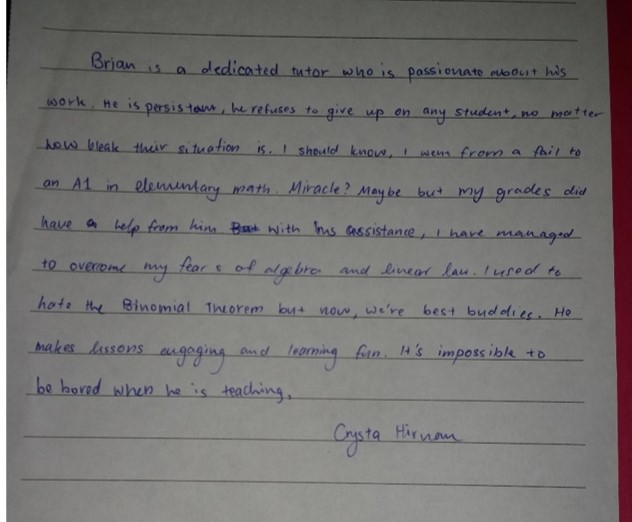 Brian is a dedicated tutor who is passionate about his
work. He is persistant, he refuses to give up on any student, no matter
how bleak their situation is. I should know, I went from a fail to
an A1 in elementary math. Miracle? Maybe but my grades did
have a help from him But with his assistance, I have managed
to overcome my fears of algebra and linear law. I used to
hate the Binomial Theorem but now, we're best buddies. He
makes lessons engaging and learning fun. It's impossible to
be bored when he is teaching.
Crysta